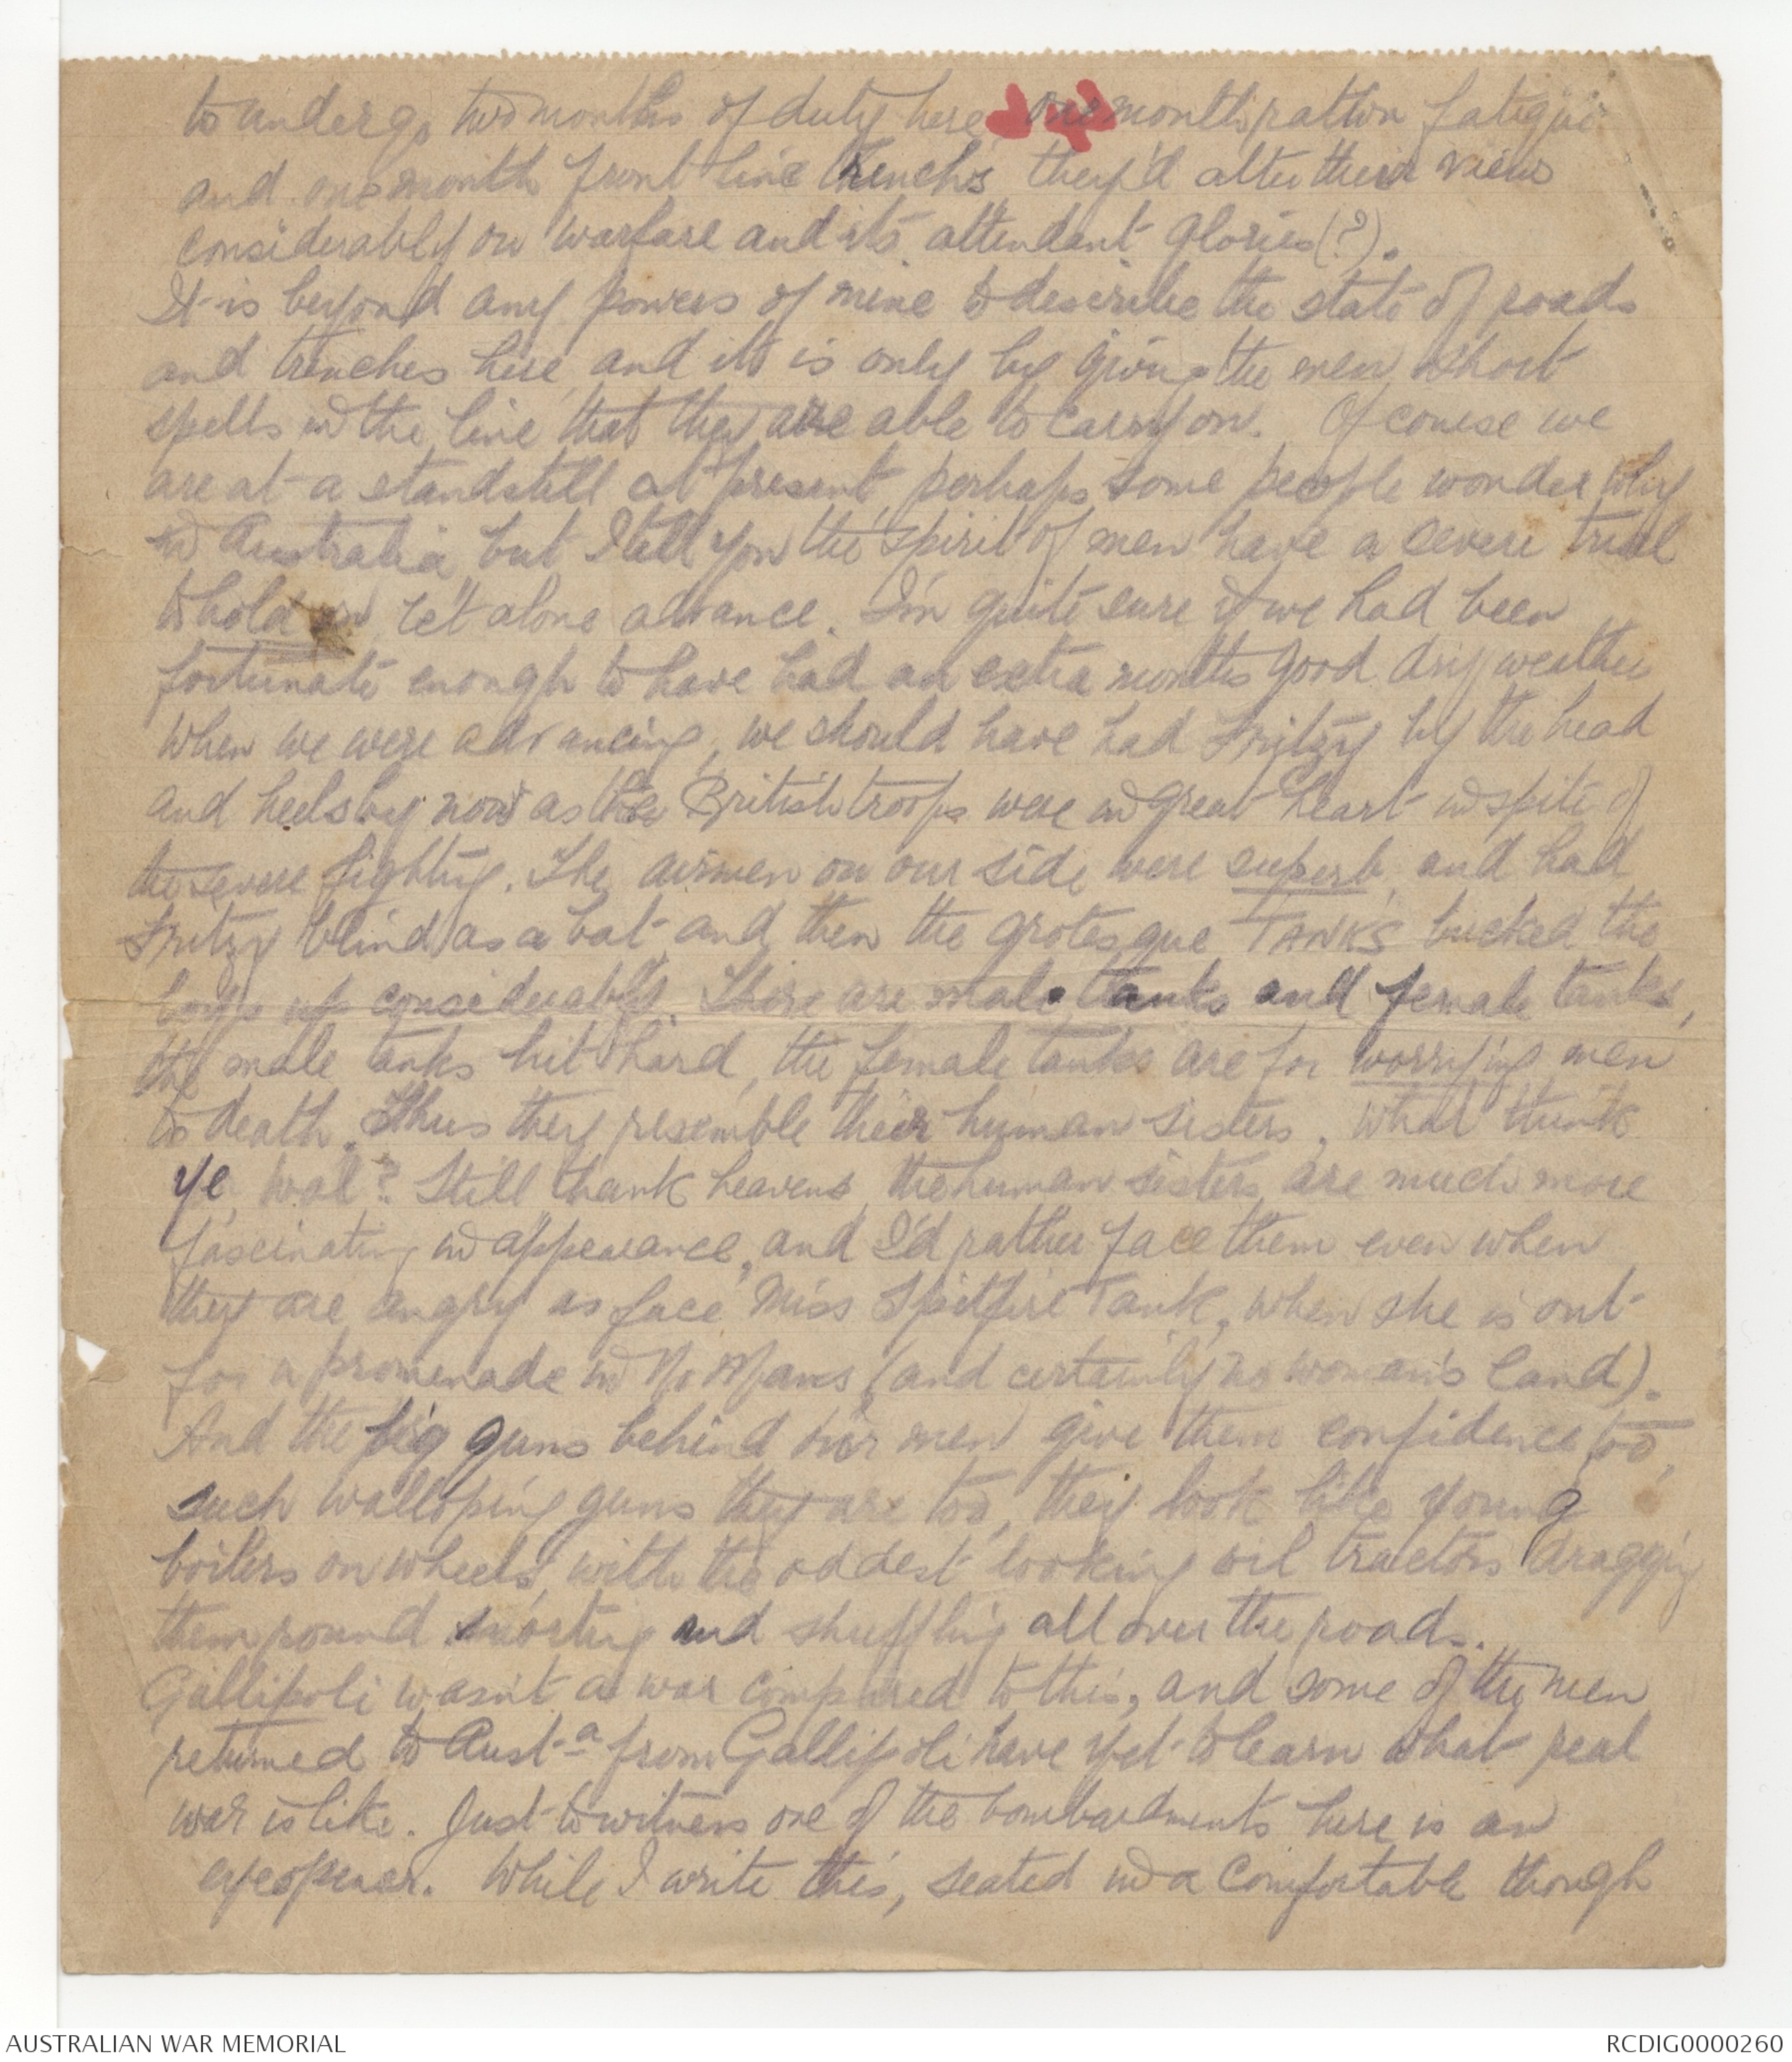 to undergo two months of duty here, one month ration fatigue
and one month front line trenchs, they'd alter their views
considerably on warfare and its attendant glories(?).
It is beyond any powers of mine to describe the state of roads
and trenches here, and it is only by giving the men short
spells in the line that they are able to carry on. Of course we
are at a standstill at present, perhaps some people wonder why
in Australia, but I tell you the spirit of men have a severe trial
to hold on, let alone advance. I'm quite sure if we had been
fortunate enough to have had an extra months good dry weather
when we were advancing, we should have had Fritzy by the head
and heels by now as the British troops were in great heart in spite of
the severe fighting. The airmen on our side were superb, and had
Fritzy blind as a bat and then the grotesque TANKS bucked the
boys up considerably. There are male tanks and female tanks,
the male tanks hit hard, the female tanks are for worrying men
to death. Thus they resemble their human sisters, what think
ye, Wal? Still thank heavens, the human sisters are much more
fascinating in appearance, and I'd rather face them even when
they are angry as face Miss Spitfire Tank, when she is out
for a promenade in No Mans (and certainly no woman's land).
And the big guns behind our men give them confidence too,
such walloping guns they are too, they look like young
boilers on wheels, with the oddest looking oil tractors dragging
them round snorting and shuffling all over the roads.
Gallipoli wasn't a war compared to this, and some of the men
returned to Aust-a from Gallipoli have yet to learn what real
war is like. Just to witness one of the bombardments here is an
eyeopener. While I write this, seated in a comfortable though
AUSTRALIAN WAR MEMORIAL
RCDIG0000260